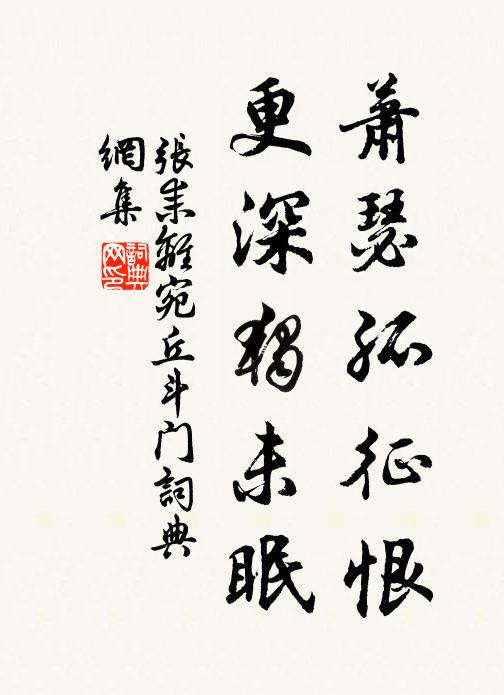 蕭瑟孤征恨
更深獨未眠
張耒離宛丘斗门詞典
網集
詞典
网印